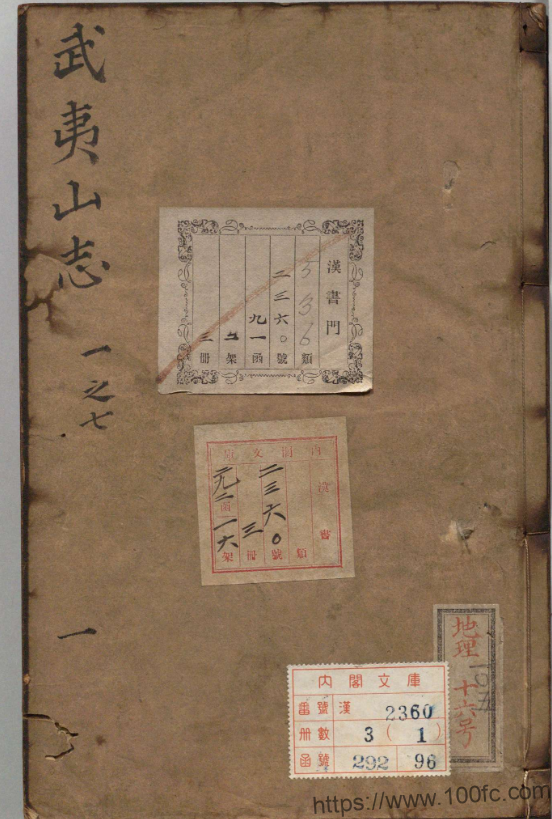 武夷山志
一之七
一
漢書門
536類
二三六〇號
九一函
架
三冊
內閣文庫
漢書
類
二三六〇號
三冊
函
一六架
地理
十六号
內閣文庫
番號 漢 2360
冊數 3(1)
函號 292 96
https://www.100fc.com